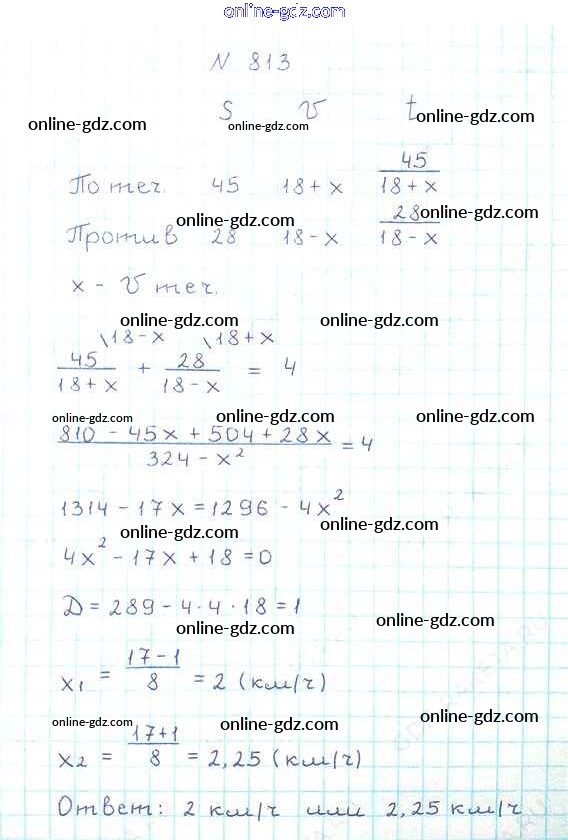 online-gdz.com
N 813
S V t
online-gdz.com online-gdz.com online-gdz.com
По теч. 45 18 + x 45/(18 + x)
online-gdz.com online-gdz.com
Против 28 18 - x 28/(18 - x)
x - V теч.
online-gdz.com online-gdz.com
\18 - x \18 + x
45/(18 + x) + 28/(18 - x) = 4
online-gdz.com online-gdz.com online-gdz.com
(810 - 45x + 504 + 28x)/(324 - x²) = 4
1314 - 17x = 1296 - 4x²
online-gdz.com online-gdz.com
4x² - 17x + 18 = 0
D = 289 - 4 · 4 · 18 = 1
online-gdz.com online-gdz.com
x₁ = (17 - 1)/8 = 2 (км/ч)
online-gdz.com online-gdz.com online-gdz.com
x₂ = (17 + 1)/8 = 2,25 (км/ч)
online-gdz.com online-gdz.com online-gdz.com
Ответ: 2 км/ч или 2,25 км/ч